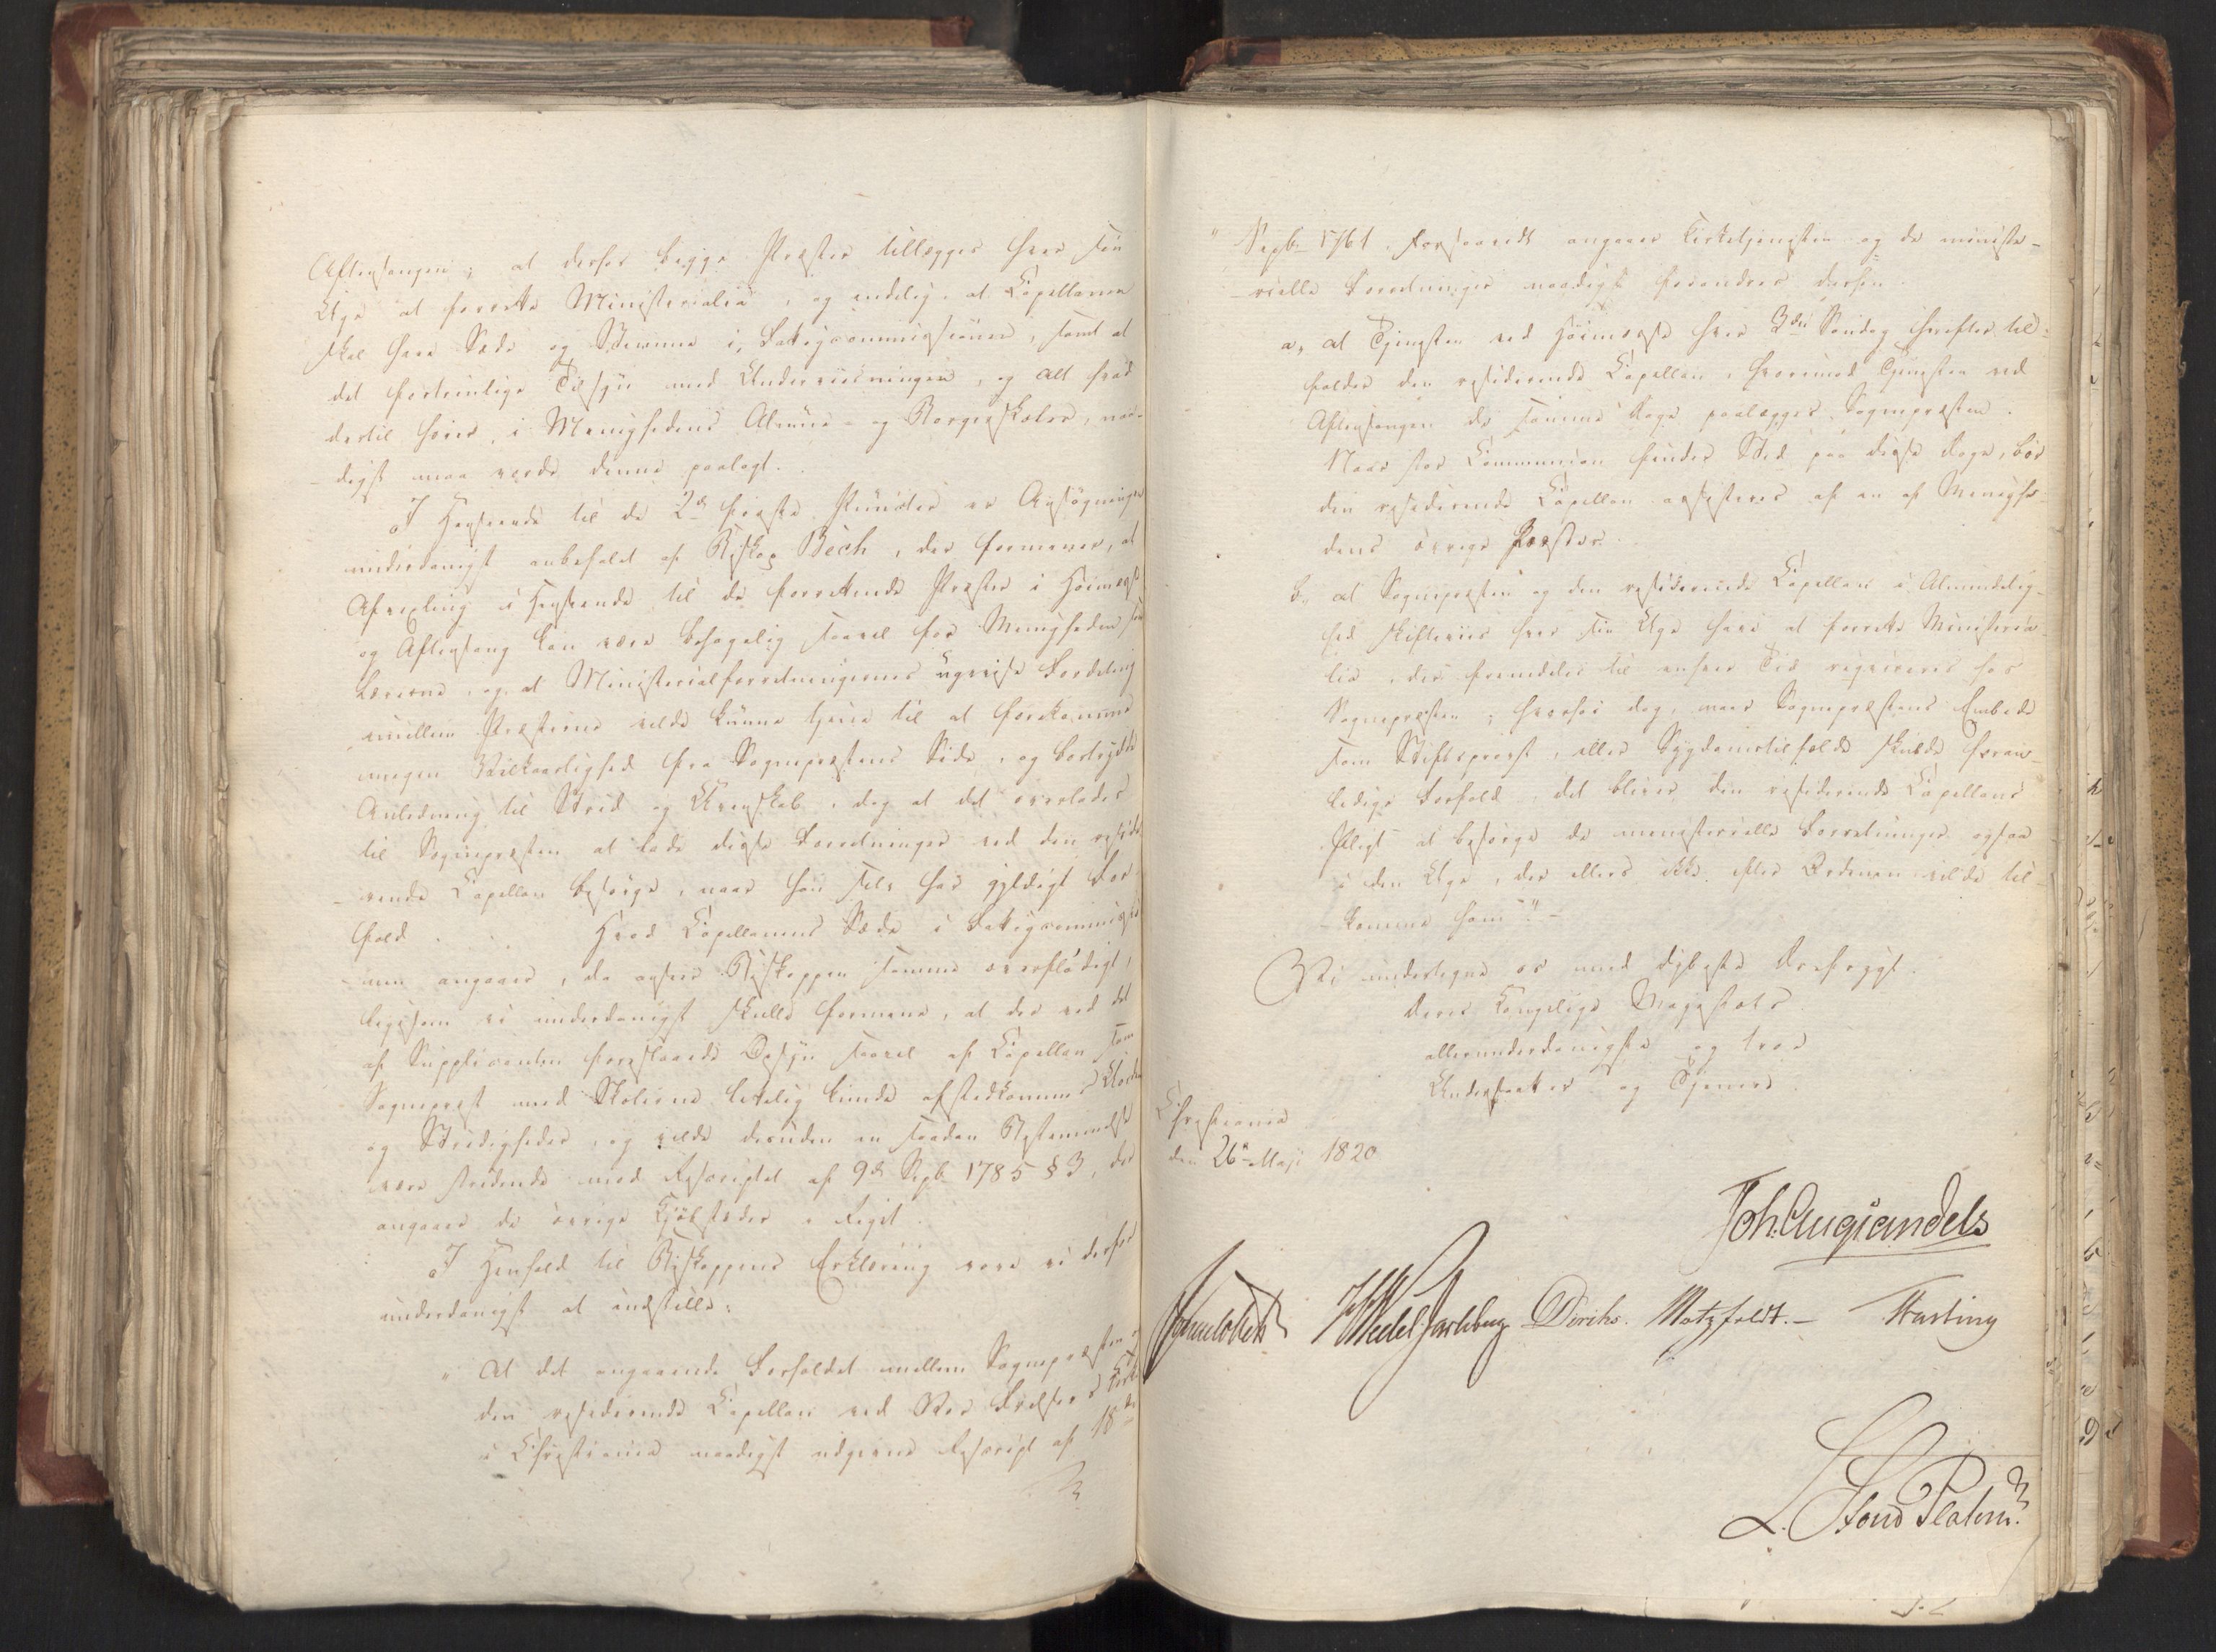 Aftensangen; at derfor begge Præster tillægges hver sin
Uge at forrette Ministerialia, og endelig, at Capellanen
skal have Sæde og Stemme i Fattigcommissionen, samt at
det fortrinlige Tilsyn med Underviisningen, og alt hvad
dertil hører, i Menighedens Almue- og Borgerskoler, naa-
digst maa vorde denne paalagt.
I Henseende til de 2de første Puncter er Ansøgningen
underdanigst anbefalet af Biskop Bech, der formener, at
Afvexling i Henseende til de forrettende Præster i Høimesse
og Aftensang kan være behagelig saavel for Menigheden som
Lærerne, og at Ministerialforretningernes ugevise Fordeling
imellem Præsterne vilde kunne tjene til at forekomme
megen Vilkaarlighed fra Sognepræstens Side, og bortrydde
Anledning til Strid og Uvenskab, dog at det overlades
til Sognepræsten at lade disse Forretninger ved den reside-
rende Capellan besørge, naar han selv har gyldigt For-
fald. Hvad Capellanens Sæde i Fattigcommissio-
nen angaaer, da anseer Biskoppen samme overflødigt,
ligesom vi underdanigst skulle formene, at der ved det
af Supplicanten foreslaaede Opsyn saavel af Capellan som
Sognepræst med Skolerne lettelig kunde afstedkommes Uorden
og Stridigheder, og vilde desuden en saadan Bestemmelse
være stridende mod Rescriptet af 9de Sept. 1785 § 3, der
angaaer de øvrige Kjøbstæder i Riget.
I Henhold til Biskoppens Erklæring vove vi derfor
underdanigst at indstille:
" At det angaaende Forholdet mellem Sognepræsten og
den residerende Capellan ved Vor Frelsers Kirke
i Christiania naadigst udgivne Rescript af 18de
" Sept. 1761, forsaavidt angaaer Kirketjenesten og de ministe-
-rielle Forretninger naadigst forandres derhen
a, at Tjenesten ved Høimesse hver 3die Søndag herefter til-
holder den residerende Capellan, hvorimod Tjenesten ved
Aftensangen de samme Dage paalægges Sognepræsten.
Naar stor Communion finder Sted paa disse Dage, bør
den residerende Capellan assisteres af en af Menighe-
dens øvrige Præster.
b, at Sognepræsten og den residerende Capellan i Almindelig-
hed skifteviis hver sin Uge have at forrette Ministeria-
lia, der fremdeles til enhver Tid requireres hos
Sognepræsten; hvorhos dog, naar Sognepræstens Embede
som Stiftsprovst, eller Sygdomstilfælde skulde foran-
ledige Forfald, det bliver den residerende Capellans
Pligt at besørge de ministerielle Forretninger ogsaa
i den Uge, der ellers ikke efter Ordenen vilde til-
komme ham". -
Vi undertegne os med dybeste Ærefrygt
Deres Kongelige Majestæts
allerunderdanigste og troe
Undersaatter og Tjenere.
Christiania
den 26de Maji 1820
Joh. Aug. Sandels
Sommerhielm HWedel Jarlsberg Diriks. Motzfeldt. - Fasting
L. Stoud Platou